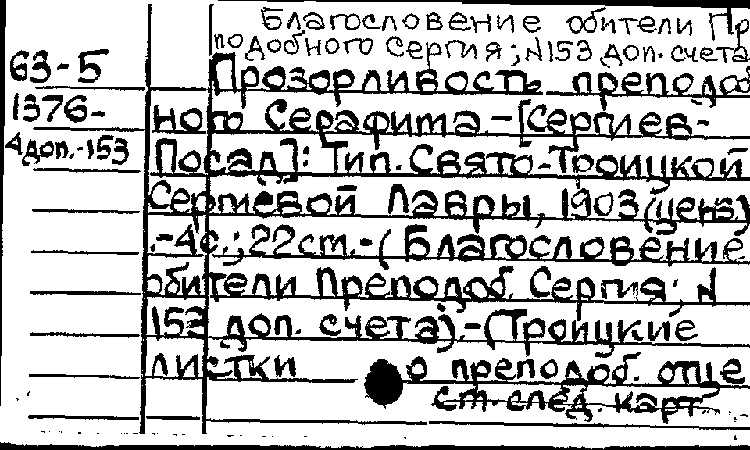 Благословение обители Пр
подобного Сергия; №153 доп. счета
63-5
Прозорливость преподоб
1376-
ного Серафима.-[Сергиев-
4доп.-153
Посад]: Тип. Свято-Троицкой
Сергиевой Лавры, 1903 (ценз)
.-4с.; 22 ст.-(Благословение
обители Преподоб. Сергия; N
153 доп. счета).-(Троицкие
листки о преподоб. отце
ст. след. карт